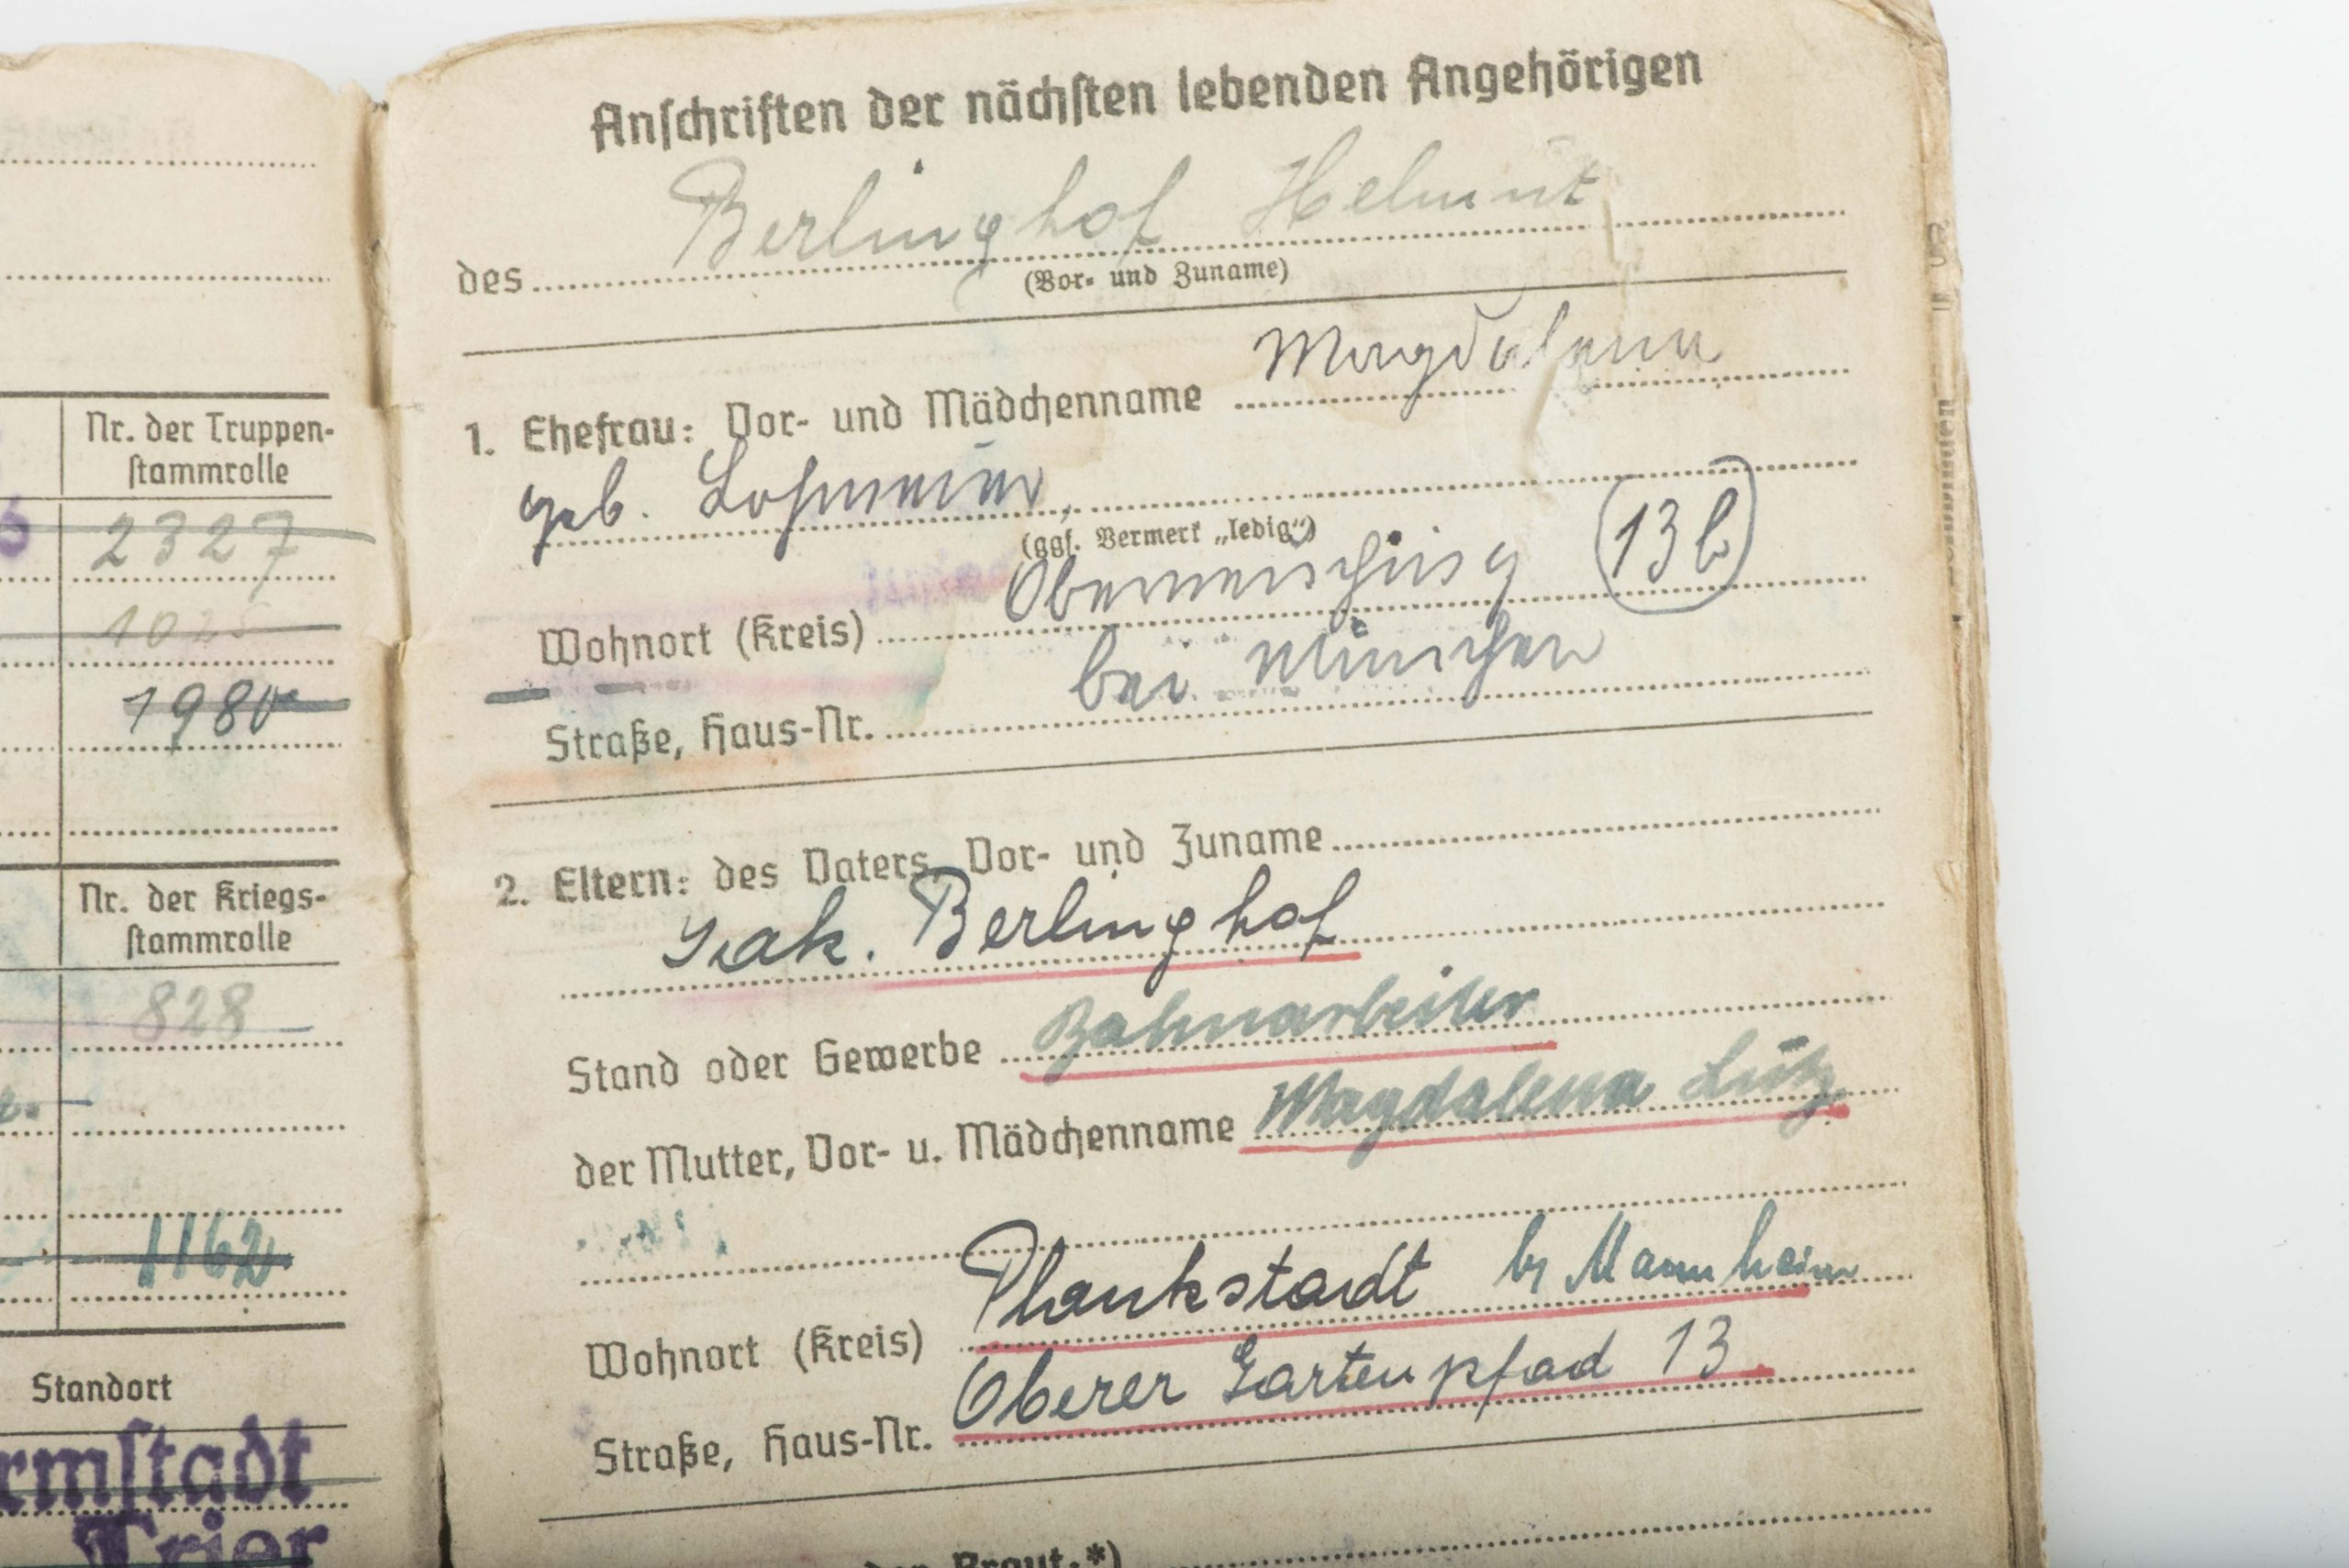 Nr. der Truppen-
stammrolle
2327
1980
Nr. der Kriegs-
stammrolle
828
1162
Standort
rmstadt
Trier
Anschriften der nächsten lebenden Angehörigen
Berlinghof Helmut
des
(Vor- und Zuname)
Magdalena
1. Ehefrau: Vor- und Mädchenname
geb. Lohmeier,
(ggf. Vermerk „ledig“)
Obermenzing 13b
Wohnort (Kreis)
bei München
Straße, Haus-Nr.
2. Eltern: des Vaters, Vor- und Zuname
Berlinghof
Stand oder Gewerbe Bahnarbeiter
der Mutter, Vor- u. Mädchenname Magdalena Lutz
Wohnort (Kreis) Plankstadt b/ Mannheim
Straße, Haus-Nr. Oberer Gartenpfad 13
Braut.*)